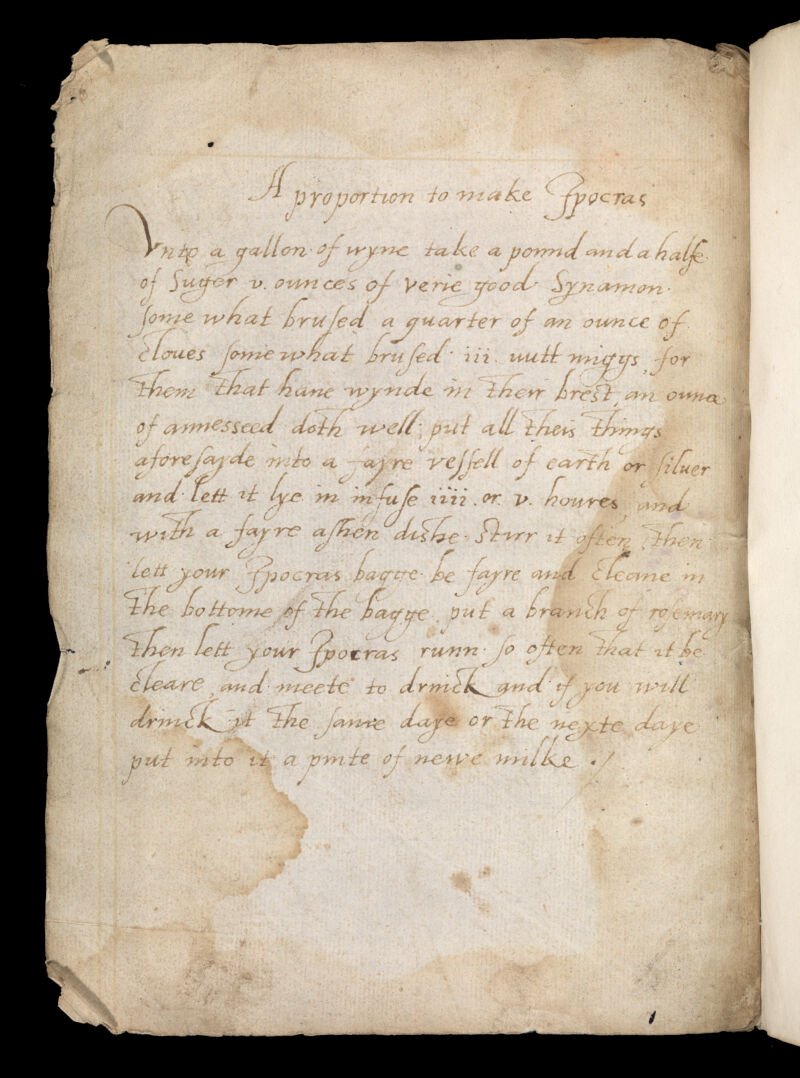 A proportion to make Ipocras
Vnto a gallon of wyne take a pound and a halfe
of Suger v. ounces of verie good Synamon
somewhat brused a quarter of an ounce of
cloues somewhat brused iii. nutt miggs, for
them that haue wynde in their brest, an ounce
of annesseed doth well; put all theis things
aforesayde into a fayre vessell of earth or siluer
and lett it lye in infuse iiii. or v. houres, and
with a fayre ashen dishe sturr it often, then
lett your Ipocras bagge be fayre and cleane in
the bottome of the bagge, put a branch of rosemary
then lett your Ipocras runn so often that it be
cleare, and meete to drinck and if you will
drinck it the same daye or the nexte daye
put into it a pinte of newe milke ./